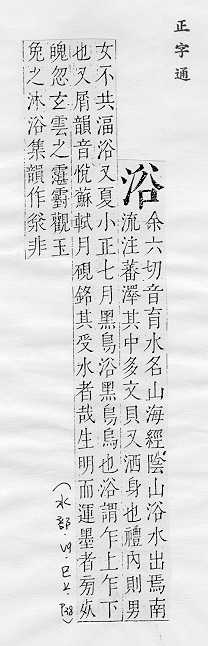 正字通
浴
余六切音育水名山海經陰山浴水出焉南
流注蕃澤其中多文貝又洒身也禮內則男
女不共湢浴又夏小正七月黑鳥浴黑鳥烏也浴謂乍上乍下
也又屑韻音悅蘇軾月硯銘其受水者哉生明而運墨者旁死
魄忽玄雲之霮䨴觀玉
兔之沐浴集韻作非
(水部.巳上.